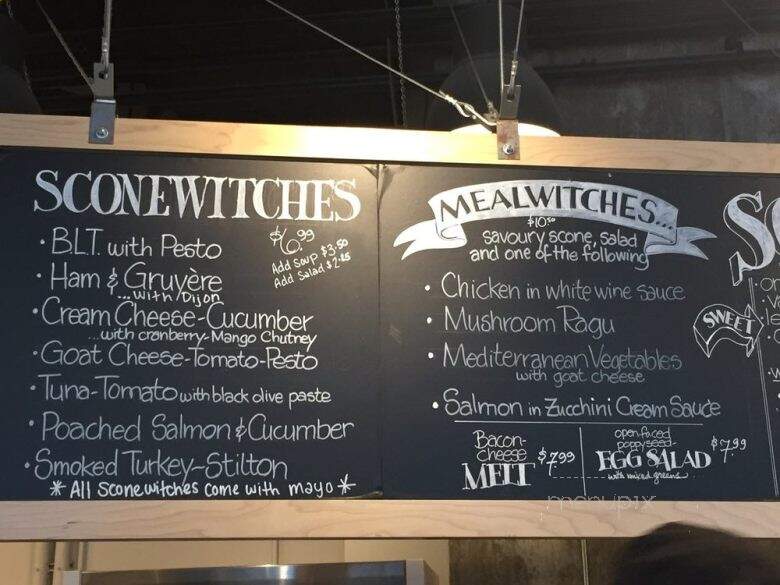 SCONEWITCHES
$6.99
Add Soup $3.50
Add Salad $2.85
• B.L.T. with Pesto
• Ham & Gruyère
...with Dijon
• Cream Cheese-Cucumber
...with cranberry-Mango Chutney
• Goat Cheese-Tomato-Pesto
• Tuna-Tomato with black olive paste
• Poached Salmon & Cucumber
• Smoked Turkey-Stilton
* All Sconewitches come with mayo *
MEALWITCHES...
$10.50
savoury scone, salad
and one of the following
• Chicken in white wine sauce
• Mushroom Ragu
• Mediterranean Vegetables
with goat cheese
• Salmon in Zucchini Cream Sauce
Bacon-
cheese
MELT
$7.99
open-faced
poppyseed-
EGG SALAD
with mixed greens
$7.99
SWEET
menupix